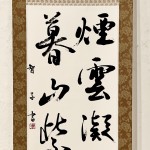 煙雲凝
暮山紫
智子書